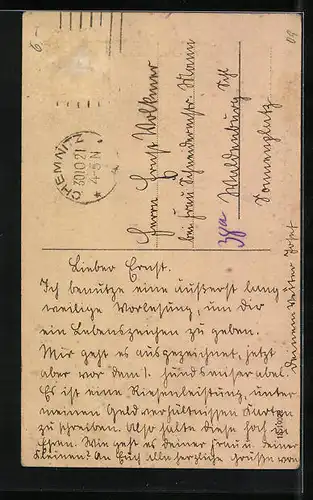 CHEMNITZ
30.10.21
4-5 N
Herrn Ernst Volkmer
bei Frau Schneidermstr. Mann
Waldenburg Schl
Sonnenplatz
Lieber Ernst.
Ich benutze eine äußerst lang-
weilige Vorlesung, um dir
ein Lebenszeichen zu geben.
Mir geht es ausgezeichnet, jetzt
aber vor dem 1. hundsmiserabel.
Es ist eine Riesenleistung, unter
meinen Geldverhältnissen Karten
zu schreiben. Also halte diese hoch in
Ehren. Wie geht es deiner Frau u. deiner
Kleinen? An Euch alle herzliche Grüße von
Deinem Vetter Josef